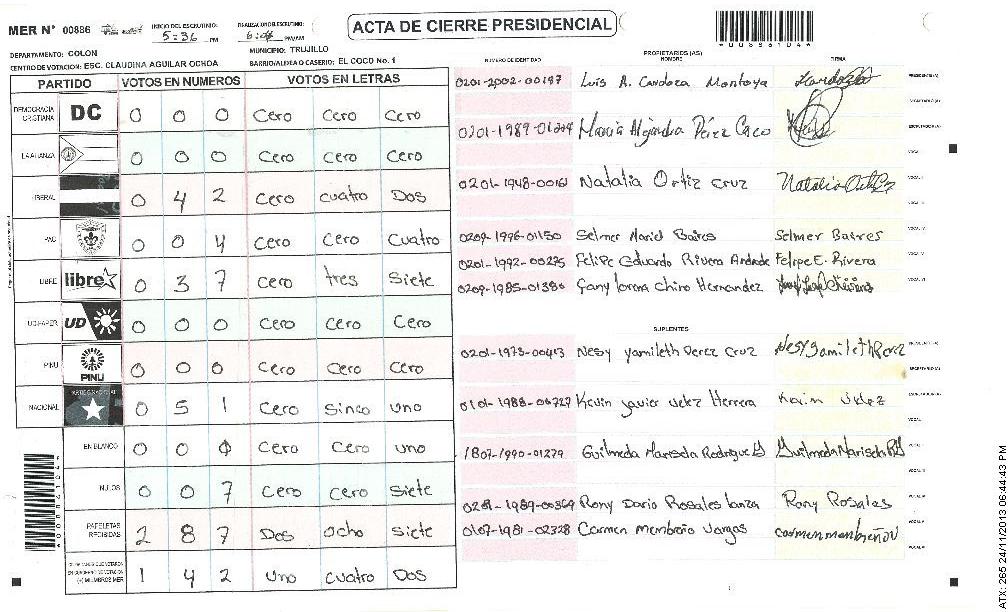 MER N° 00886
INICIO DEL ESCRUTINIO:
5:36 PM
FINALIZACION DEL ESCRUTINIO:
PM/AM
ACTA DE CIERRE PRESIDENCIAL
DEPARTAMENTO: COLON
MUNICIPIO: TRUJILLO
CENTRO DE VOTACION: ESC. CLAUDINA AGUILAR OCHOA
BARRIO/ALDEA O CASERIO: EL COCO No. 1
PARTIDO VOTOS EN NUMEROS VOTOS EN LETRAS
DEMOCRACIA CRISTIANA DC 0 0 0 Cero Cero Cero
LA ALIANZA 0 0 0 Cero Cero Cero
LIBERAL 0 4 2 Cero cuatro Dos
PAC 0 0 4 Cero Cero Cuatro
LIBRE libre 0 3 7 Cero tres Siete
UD-FAPER UD 0 0 0 Cero Cero Cero
PINU PINU 0 0 0 Cero Cero Cero
NACIONAL 0 5 1 Cero Sinco uno
EN BLANCO 0 0 Cero Cero uno
NULOS 0 0 7 Cero Cero Siete
PAPELETAS RECIBIDAS 2 8 7 Dos ocho siete
(+) MIEMBROS MER 1 4 2 uno cuatro Dos
PROPIETARIOS (AS)
NUMERO DE IDENTIDAD NOMBRE FIRMA
0201-2002-00197 Luis A. Cardoza Montoya
Maria Alejandra Pérez Caco
0201-1948-00161 Natalia Ortiz cruz
0209-1996-01150 Selmer Mariel Baires Selmer Baires
0201-1992-00275 Felipe Eduardo Rivera Andrade Felipe E. Rivera
0209-1985-01380 Gany lorena Chiro Hernandez
SUPLENTES
0201-1973-00413 Nesy yamileth Perez Cruz
0101-1988-00727 Kevin javier velez Herrera
1807-1990-01279
Rony Dario Rosales Rony Rosales
0107-1981-02328 Carmen Membreño Vargas
ATX: 265 24/11/2013 06:44:43 PM